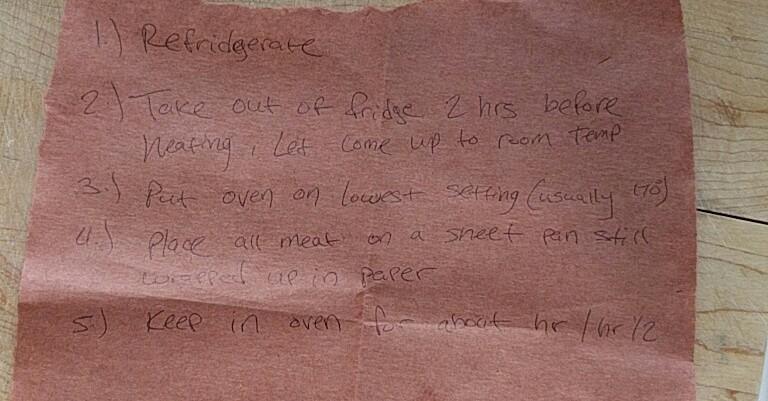 1.) Refridgerate
2.) Take out of fridge 2 hrs before
heating, Let come up to room temp
3.) Put oven on lowest setting (usually 170)
4.) Place all meat on a sheet pan still
wrapped up in paper
5.) Keep in oven for about hr / hr 1/2